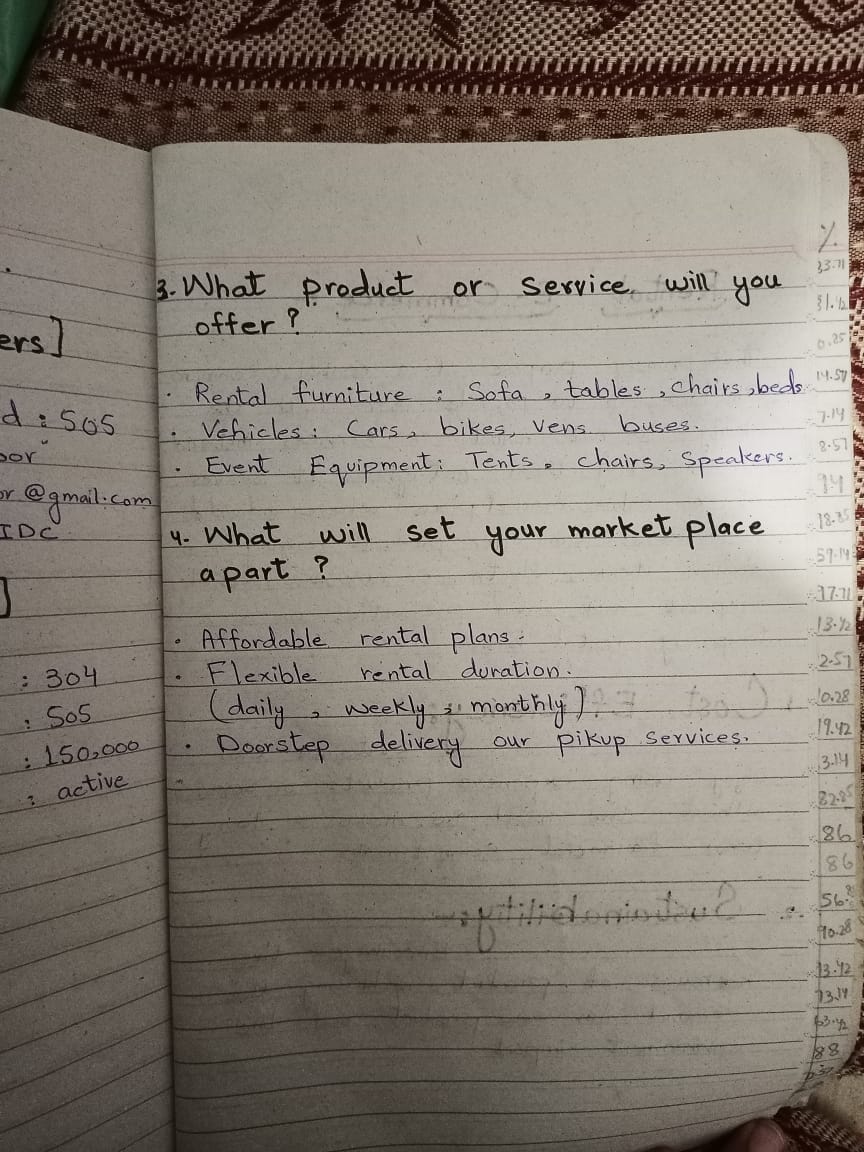 ers]
d : 505
or
@gmail.com
IDC
]
: 304
: 505
: 150,000
: active
3. What product or service will you
offer ?
. Rental furniture : Sofa , tables , chairs , beds
. Vehicles : Cars , bikes, vens buses.
. Event Equipment : Tents , chairs, Speakers.
4. What will set your market place
apart ?
. Affordable rental plans.
. Flexible rental duration.
(daily , weekly , monthly).
. Doorstep delivery our pikup services.
Sustainability
%
33.71
0.85
14.57
7.14
8.57
18.85
57.14
37.71
13.42
2.57
10.28
19.42
3.14
82.85
86
86
90.28
13.42
73.14
63.42
88